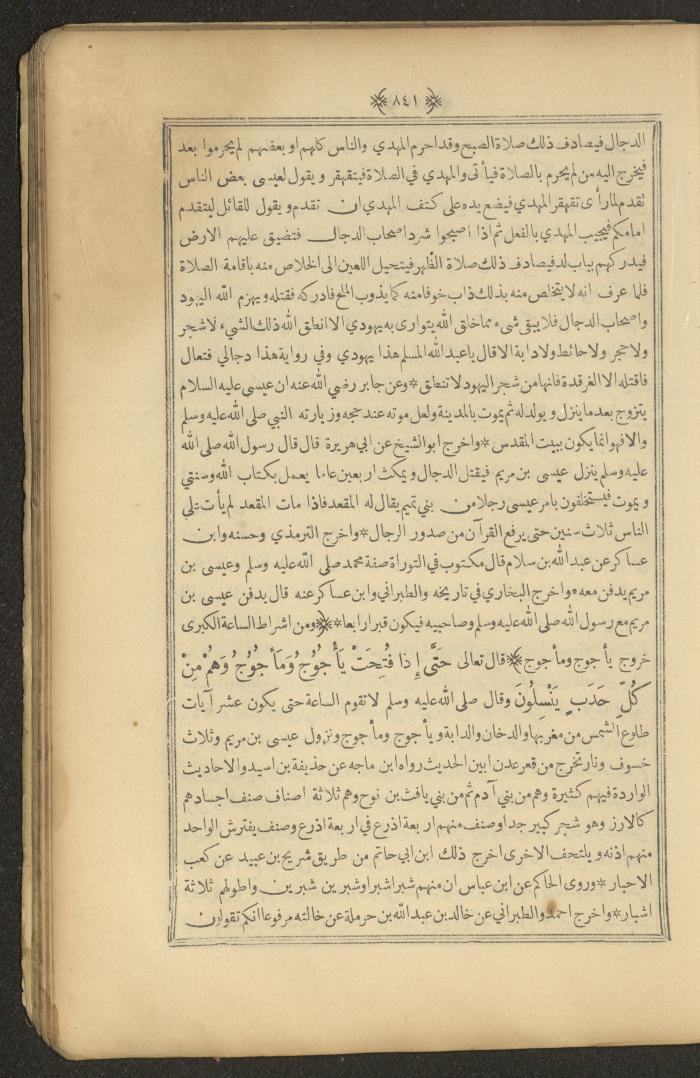 ٨٤١
الدجال فيصادف ذلك صلاة الصبح وقد احرم المهدي والناس كلهم او بعضهم لم يحرموا بعد
فيخرج اليه من لم يحرم بالصلاة فيأتى والمهدي في الصلاة فيتقهقر ويقول لعيسى بعض الناس
تقدم لما رأى تقهقر المهدي فيضع يده على كتف المهدي ان تقدم ويقول للقائل ليتقدم
امامكم فيجيب المهدي بالفعل ثم اذا اصبحوا شرد اصحاب الدجال فتضيق عليهم الارض
فيدركهم بباب لد فيصادف ذلك صلاة الظهر فيتحيل اللعين الى الخلاص منه باقامة الصلاة
فلما عرف انه لا يتخلص منه بذلك ذاب خوفا منه كما يذوب الملح فادركه فقتله ويهزم الله اليهود
واصحاب الدجال فلا يبقى شىء مما خلق الله يتوارى به يهودي الا انطق الله ذلك الشيء لا شجر
ولا حجر ولا حائط ولا دابة الا قال يا عبد الله المسلم هذا يهودي وفي رواية هذا دجالي فتعال
فاقتله الا الغرقدة فانها من شجر اليهود لا تنطق * وعن جابر رضي الله عنه ان عيسى عليه السلام
يتزوج بعد ما ينزل ويولد له ثم يموت بالمدينة ولعل موته عند حجه وزيارته النبي صلى الله عليه وسلم
والا فهو انما يكون ببيت المقدس * واخرج ابو الشيخ عن ابي هريرة قال قال رسول الله صلى الله
عليه وسلم ينزل عيسى بن مريم فيقتل الدجال ويمكث اربعين عاما يعمل بكتاب الله وسنتي
ويموت فيستخلفون بامر عيسى رجلا من بني تميم يقال له المقعد فاذا مات المقعد لم يأت على
الناس ثلاث سنين حتى يرفع القرآن من صدور الرجال * واخرج الترمذي وحسنه وابن
عساكر عن عبد الله بن سلام قال مكتوب في التوراة صفة محمد صلى الله عليه وسلم وعيسى بن
مريم يدفن معه * واخرج البخاري في تاريخه والطبراني وابن عساكر عنه قال يدفن عيسى بن
مريم مع رسول الله صلى الله عليه وسلم وصاحبيه فيكون قبرا رابعا * ﴿ ومن اشراط الساعة الكبرى
خروج يأجوج ومأجوج ﴾ قال تعالى حَتَّى إِذا فُتِحَتْ يَأْجُوجُ وَمَأْجُوجُ وَهُمْ مِنْ
كُلِّ حَدَبٍ يَنْسِلُونَ وقال صلى الله عليه وسلم لا تقوم الساعة حتى يكون عشر آيات
طلوع الشمس من مغربها والدخان والدابة ويأجوج ومأجوج ونزول عيسى بن مريم وثلاث
خسوف ونار تخرج من قعر عدن ابين الحديث رواه ابن ماجه عن حذيفة بن اسيد والاحاديث
الواردة فيهم كثيرة وهم من بني آدم ثم من بني يافث بن نوح وهم ثلاثة اصناف صنف اجسادهم
كالارز وهو شجر كبير جدا وصنف منهم اربعة اذرع في اربعة اذرع وصنف يفترش الواحد
منهم اذنه ويلتحف الاخرى اخرج ذلك ابن ابي حاتم من طريق شريح بن عبيد عن كعب
الاحبار * وروى الحاكم عن ابن عباس ان منهم شبرا شبرا وشبرين شبرين واطولهم ثلاثة
اشبار * واخرج احمد والطبراني عن خالد بن عبد الله بن حرملة عن خالته مرفوعا انكم تقولون